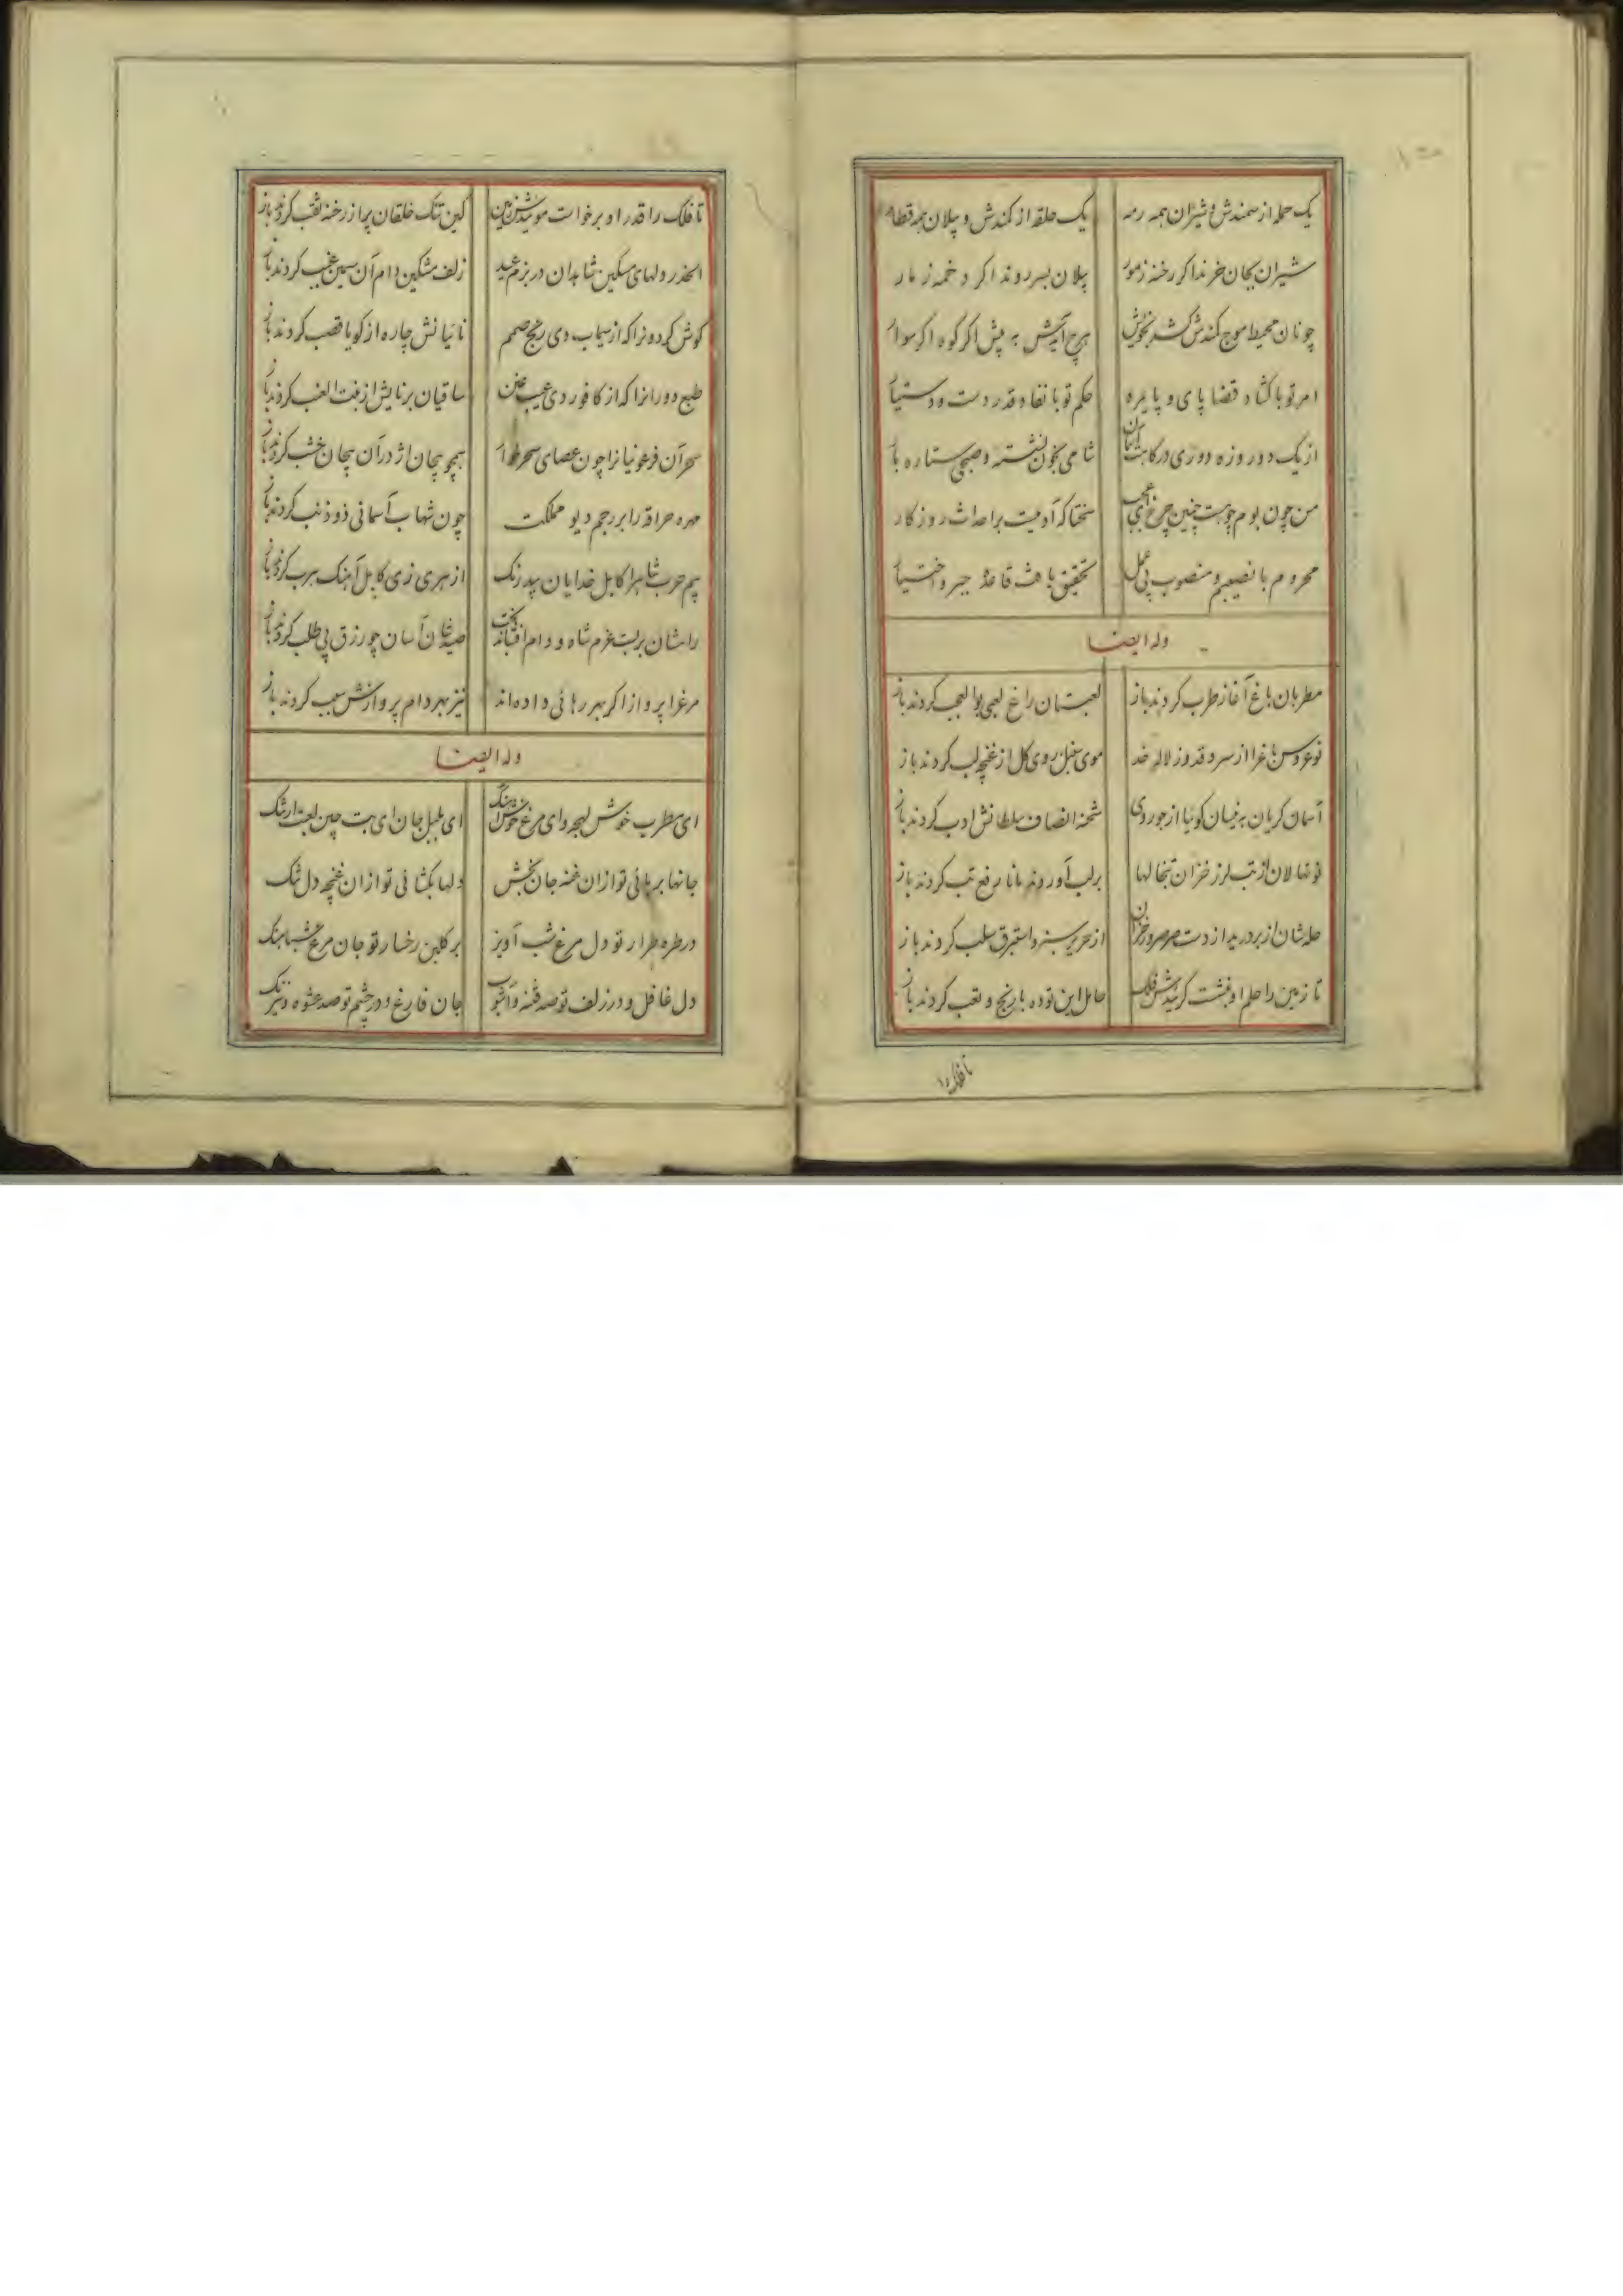 یک حمله از سمندش و شیران همه رمه یک حلقه از کمندش و پیلان همه قطار
شیران بجان خرند اکر رخنه ز مور پیلان بسر روند اکر دخمه ز مار
چونان محیط موج کمندش بخویش هیچ آیدش به پیش اکر کوه اکر سوار
امر تو با کشاد قضا پای و پایمره حکم تو با نفاد قدر دست و دستیار
از یک دو روزه دوری درکابت شامی بخون نشسته و صبحی ستاره بار
من چون بوم چنین چرخ سختا که آدمیت بر احداث روزکار
محروم با نصیبم و منصوب بی عمل تحقیق یافت قاعدهٔ جبر و اختیار
وله ایضا
مطربان باغ آغاز طرب کردند باز لعبتان راغ لعبی بوالعجب کردند باز
نوعروس باغ را از سرو قد وز لاله خد موی سنبل روی کل از غنچه لب کردند باز
آسمان کریان به نیسان کوئیا از جور دی شحنه انصاف سلطانش ادب کردند باز
نونهالان از تب لرز خزان تبخالها بر لب آوردند مانا رفع تب کردند باز
حله شان از بر درید از دست صرصر در خزان از حریر سبز و استبرق سلب کردند باز
تا زمین را حلم او فلک حامل این توده با رنج و تعب کردند باز
تا فلک را
تا فلک را قدر او برخواست زمین کین تنک خلقان پر از رخنه ثقب کردند باز
الحذر دلهای مسکین شاهدان در بزم عید زلف مشکین دام آن سیمین غبب کردند باز
کوش کردونرا که از سیماب دی رنج صمم نائیانش چاره از کویا قصب کردند باز
طبع دورانرا که از کافور دی عنین ساقیان برنایش از بنت العنب کردند باز
سحر آن فرعونیانرا چون عصای همچو پیچان اژدر آن پیچان خشب کردند باز
مهره حراقه را بر رجم دیو مملکت چون شهاب آسمانی ذو ذنب کردند باز
از هری زی کابل آهنک هرب کردند باز
صید شان آسان چو رزق بی طلب کردند باز
مرغرا پرواز اکر بهر رهائی داده اند نیز بهر دام پروازش سبب کردند باز
وله ایضا
ای مطرب خوش لهجه وای مرغ خوش آهنک ای بلبل جان ای بت چین لعبت ارتنک
جانها برهائی تو ازان غنه جان بخش دلها بکشائی تو ازان غنچه دل تنک
در طره طرار تو دل مرغ شب آویز بر کلبن رخسار تو جان مرغ شباهنک
دل غافل و در زلف تو صد فتنه و آشوب جان فارغ و در چشم تو صد عشوه و نیرنک